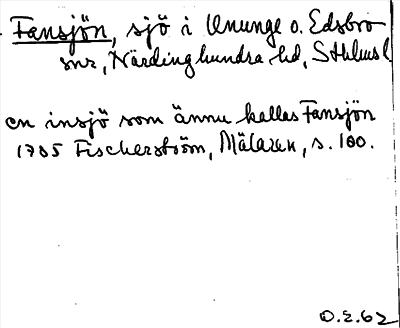 Fansjön, sjö i Ununge o. Edsbro
snr, Närdinghundra hd, Sthlmsl
en insjö som ännu kallas Fansjön
1785 Fischerström, Mälaren, s. 100.
O.E.62